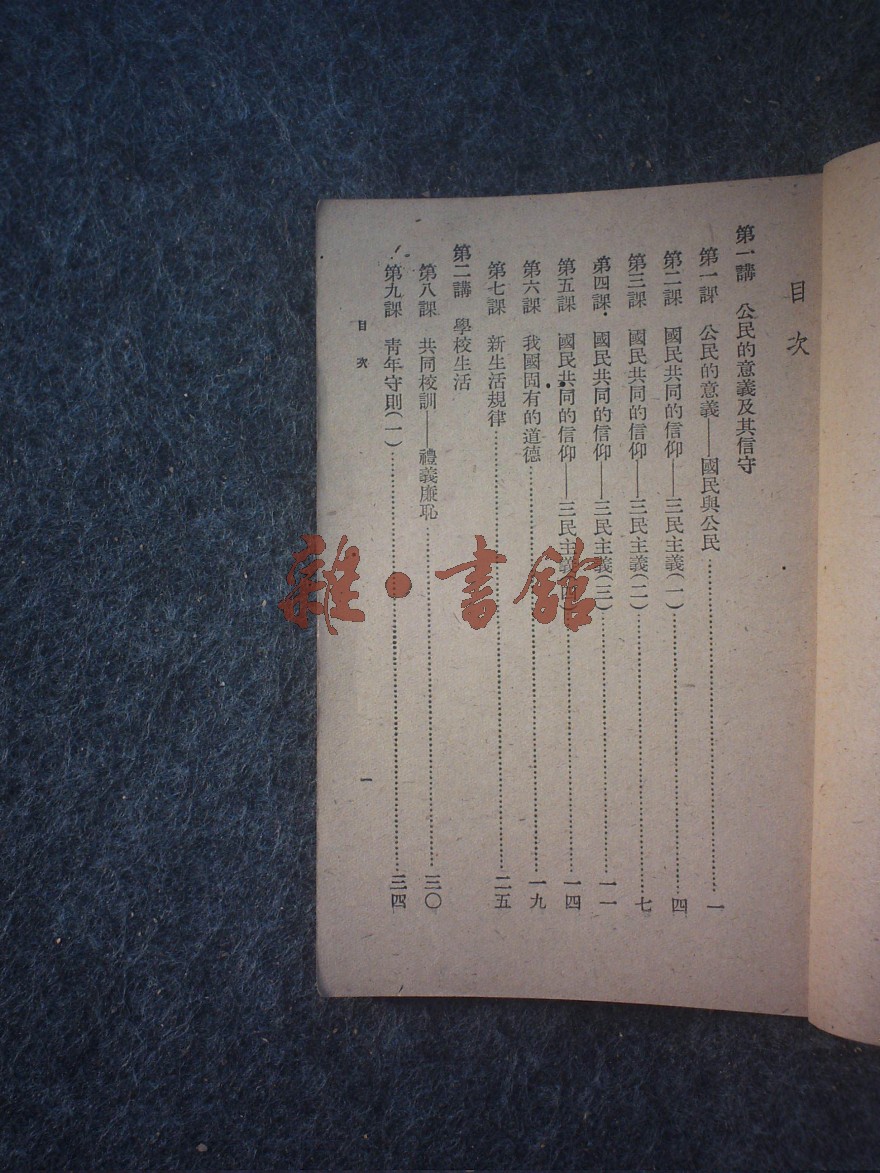 目次
第一講 公民的意義及其信守
第一課 公民的意義——國民與公民……一
第二課 國民共同的信仰——三民主義(一)……四
第三課 國民共同的信仰——三民主義(二)……七
第四課 國民共同的信仰——三民主義(三)……一一
第五課 國民共同的信仰——三民主義(四)……一四
第六課 我國固有的道德……一九
第七課 新生活規律……二五
第二講 學校生活
第八課 共同校訓——禮義廉恥……三〇
第九課 青年守則(一)……三四
目次 一
雜·書館